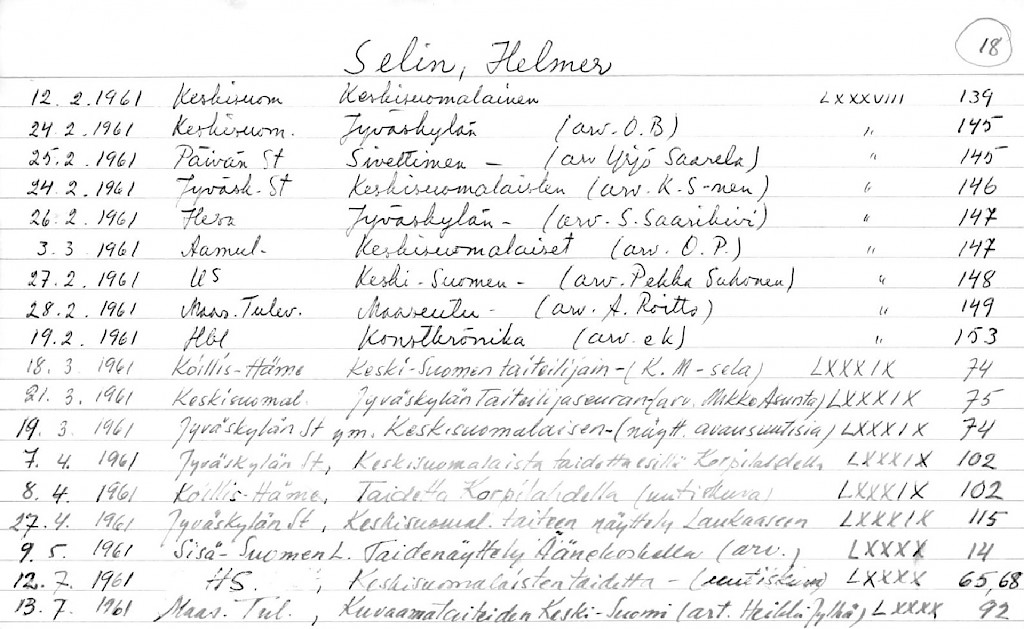 18
Selin, Helmer
12. 2. 1961 Keskisuom Keskisuomalainen LXXXVIII 139
24. 2. 1961 Keskisuom. Jyväskylän (arv. O.B) " 145
25. 2. 1961 Päivän St Sivettimen - (arv Yrjö Saarela) " 145
24. 2. 1961 Jyväsk. St Keskisuomalaisten (arv. K-S-nen) " 146
26. 2. 1961 Jyväskylän - (arv. S. Saarikivi) " 147
3. 3. 1961 Aamul. Keskisuomalaiset (arv. O.P.) " 147
27. 2. 1961 US Keski-Suomen - (arv. Pekka Suhonen) " 148
28. 2. 1961 Maas. Tulev. Maaseutu - (arv. A. Roitto) " 149
19. 2. 1961 Hbl Konstkrönika (arv. ek) " 153
18. 3. 1961 Koillis-Häme Keski-Suomen taiteilijain - (K. M-sela) LXXXIX 74
21. 3. 1961 Keskisuomal. Jyväskylän Taiteilijaseuran (arv. Mikko Asunta) LXXXIX 75
19. 3. 1961 Jyväskylän St ym. Keskisuomalaisen - (näytt. avausuutisia) LXXXIX 74
7. 4. 1961 Jyväskylän St, Keskisuomalaista taidetta esillä Korpilahdella LXXXIX 102
8. 4. 1961 Koillis-Häme, Taidetta Korpilahdella (uutiskuva) LXXXIX 102
27. 4. 1961 Jyväskylän St, Keskisuomal. taiteen näyttely Laukaaseen LXXXIX 115
9. 5. 1961 Sisä-Suomen L. Taidenäyttely Äänekoskella (arv.) LXXXX 14
12. 7. 1961 HS. , Keskisuomalaisten taidetta - (uutiskuva) LXXXX 65,68
13. 7. 1961 Maas. Tul. , Kuvaamataiteiden Keski-Suomi (art. Heikki Jylhä) LXXXX 92